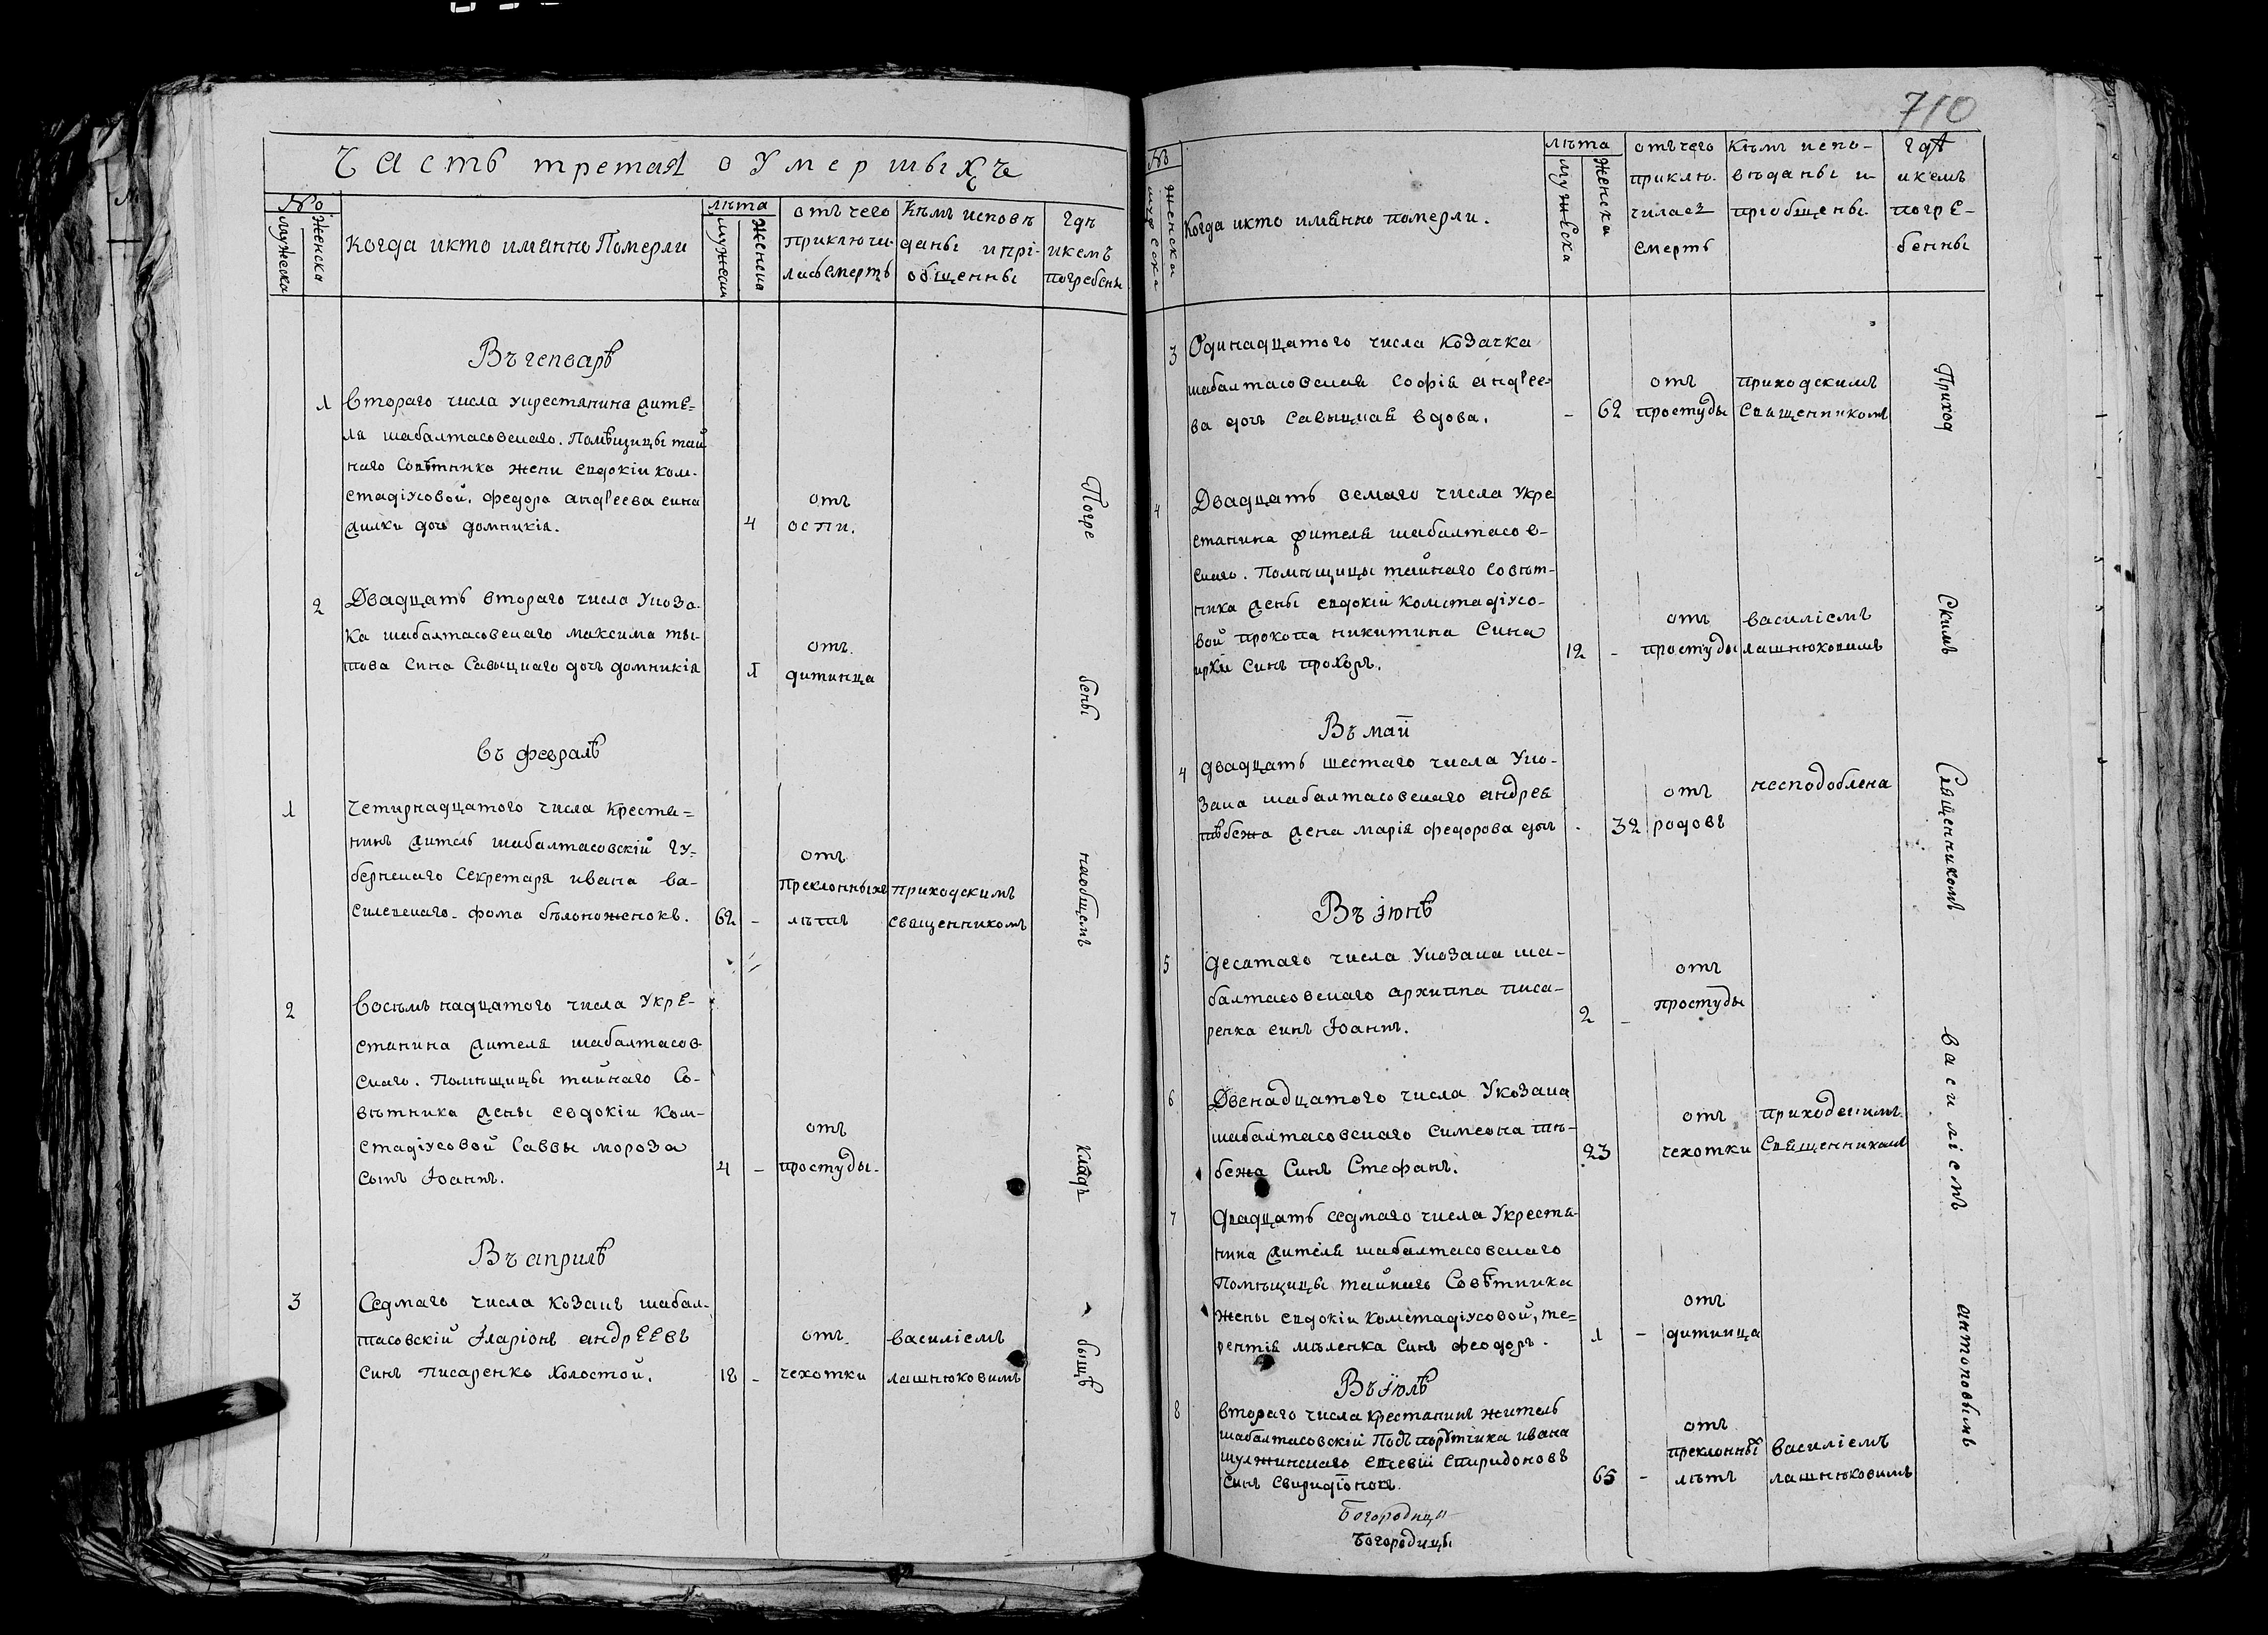 Часть третая о умершыхъ
№
мужеска
женска
Когда икто имянно Померли
лѣта
мужеска
женска
отъ чего
приключи-
лась смерть
Кѣмъ исповѣ
даны и прі-
общенны
гдѣ
икемъ
погребены
Въ генварѣ
1
втораго числа укрестянина жите=
ля шабалтасовскаго. Помѣщицы тай
наго Совѣтника жени евдокіи ком-
стадіусовой, федора андреева сина
дочь домникія.
4
отъ
оспи.
2
Двадцать втораго числа Укоза-
ка шабалтасовскаго максима ти-
това Сина Савыцкаго дочъ домникія
1
отъ
дитинца
въ февралѣ
1
четирнадцатого числа крестя=
нинъ житель шабалтасовскій гу=
бернскаго Секретаря ивана ва-
силевскаго. фома бѣлоноженокъ.
62
-
отъ
Преклонныхъ
лѣтъ
приходскимъ
священникомъ
2
Восѣмънадцатого числа Укре-
стянина жителя шабалтасов
скаго. Помѣщицы тайнаго Со-
вѣтника жены евдокіи ком-
стадіусовой Саввы мороза
сынъ Іоаннъ.
4
-
отъ
простуды.
Въ априлѣ
3
Седмаго числа козакъ шабал-
тасовскій Іларіонъ андреевъ
синъ писаренко холостой.
18
-
отъ
чехотки
василіемъ
лашнюковимъ
Погре
бены
наобщемъ
кладъ
бищѣ
710
№
мужеска
женска
Когда икто имянно померли.
лѣта
мужеска
женска
отъ чего
приклю-
чилась
смерть
Кѣмъ испо-
вѣданы и
пріобщены
гдѣ
икемъ
погре-
бенны
3
Одинадцатого числа козачка
шабалтасовская софія андрее-
ва дочъ Савыцкая вдова.
-
62
отъ
простуды
приходскимъ
Священникомъ
4
Двадцать осмаго числа Укре
стянина жителя шабалтасов-
скаго. Помѣщицы тайнаго совѣт-
ника жены евдокіи комстадіусо-
вой прокопа никитина Сина
Синъ прохоръ.
12
-
отъ
простуды
василіемъ
лашнюковимъ
Въ маи
4
двадцать шестаго числа Уко-
зака шабалтасовскаго андрея
пѣбежа жена марія федорова дочъ
-
32
отъ
родовъ
несподоблена
Въ іюнѣ
5
десятаго числа Укозака ша-
балтасовскаго архиппа писа-
ренка синъ Іоаннъ.
2
-
отъ
простуды
6
Двенадцатого числа Укозака
шабалтасовскаго симеона пѣ-
бежа Синъ Стефанъ.
23
отъ
чехотки
приходскимъ
Священникамъ
7
двадцать седмаго числа Укрестя-
нина жителя шабалтасовскаго
Помѣщицы тайнаго Совѣтника
жены евдокіи комстадіусовой, те-
рентія мѣленка синъ феодоръ.
1
-
отъ
дитинца
Въ іюлѣ
8
втораго числа крестянинъ житель
шабалтасовскій Подъпорутчика ивана
шулжинскаго евсевій спиридоновъ
синъ
65
-
отъ
преклонныхъ
лѣтъ
василіемъ
лашнюковимъ
Богородици
Богородицы
Приход
Скимъ
Священникомъ
василіемъ
антоновымъ